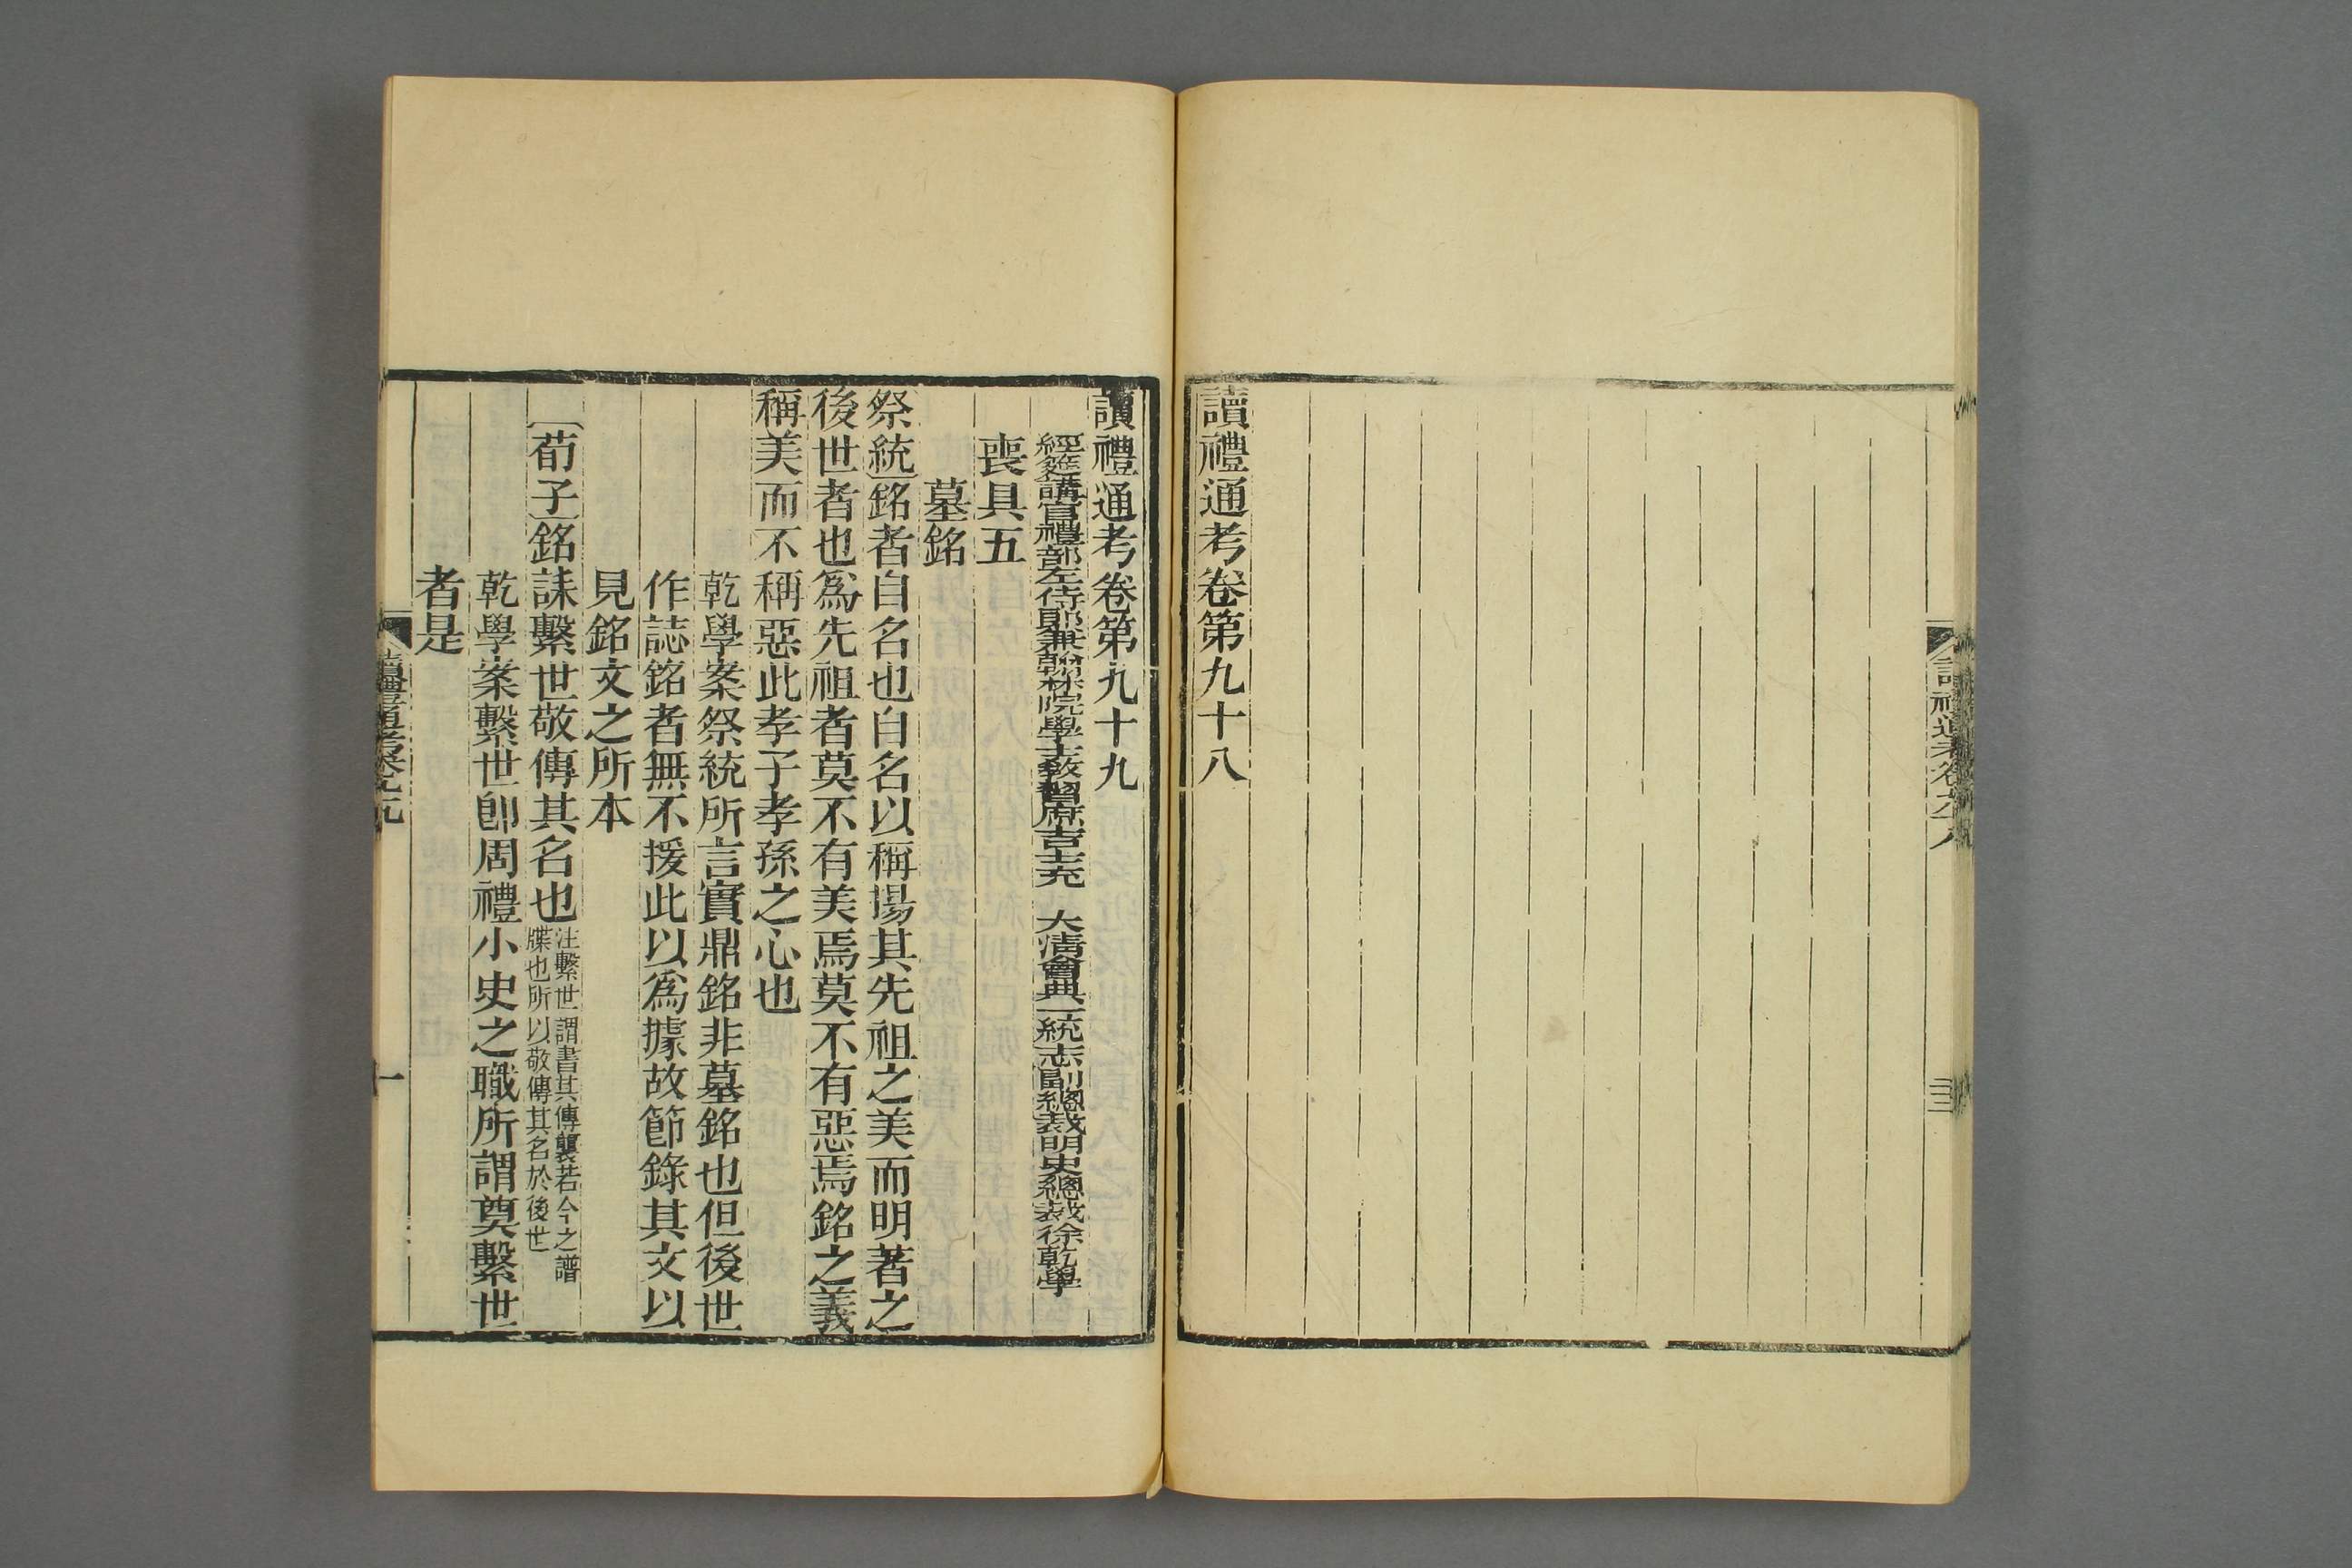 讀禮通考卷第九十八
讀禮通考卷九十八
三三
讀禮通考卷第九十九
經筵講官禮部左侍郎兼翰林院學士敎習庶吉士充　大淸會典一統志副總裁明史總裁徐乾學
喪具五
墓銘
祭統銘者自名也自名以稱揚其先祖之美而明著之
後世者也爲先祖者莫不有美焉莫不有惡焉銘之義
稱美而不稱惡此孝子孝孫之心也
乾學案祭統所言實鼎銘非墓銘也但後世
作誌銘者無不援此以爲據故節錄其文以
見銘文之所本
荀子銘誄繫世敬傳其名也
注繫世謂書其傳襲若今之譜
牒也所以敬傳其名於後世
乾學案繫世卽周禮小史之職所謂奠繫世
者是
讀禮通考卷九十九
一